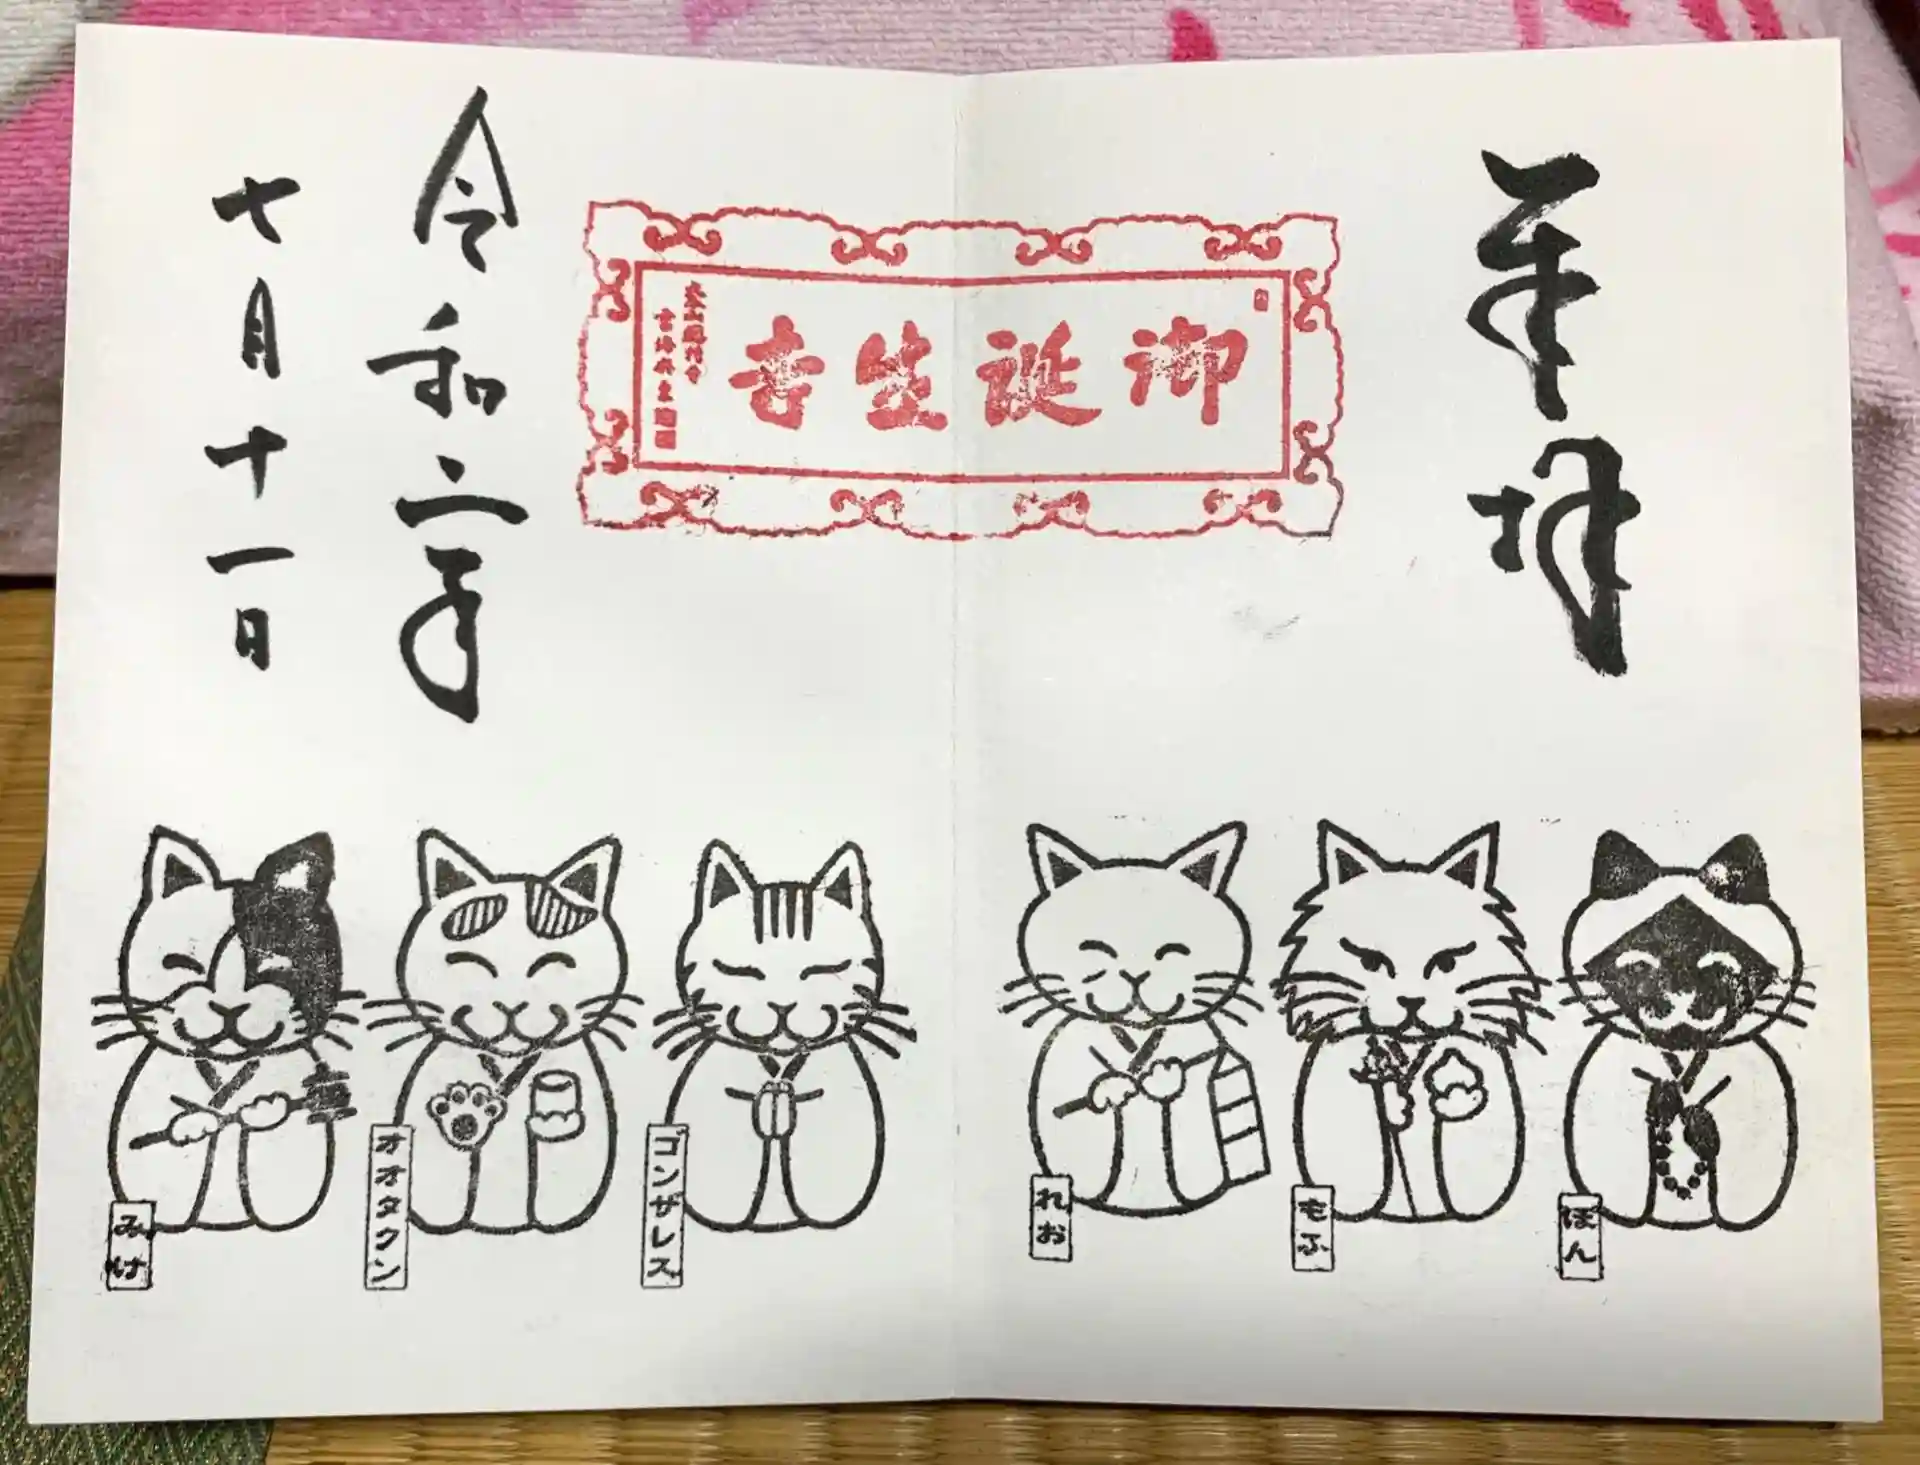 奉拝
御誕生寺
令和二年
七月十一日
ぽん
もふ
れお
ゴンザレス
オオタクン
みけ